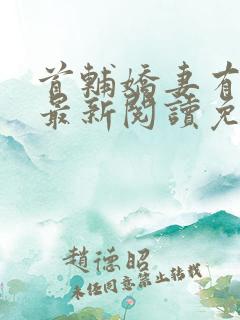 首輔嬌妻有
最新閱讀免
趙德昭
未经同意禁止转载